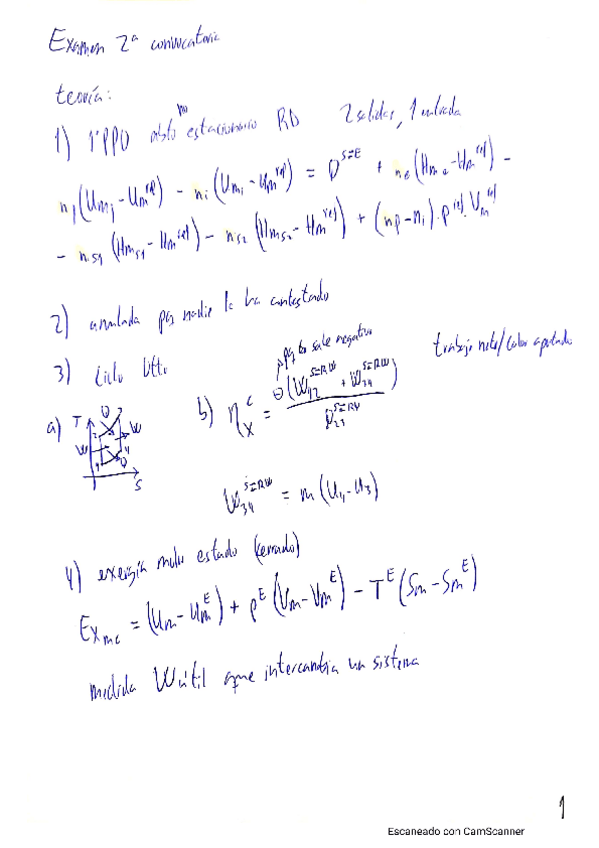 Examen 2ª convocatoria
teoría:
1) 1ºPPD abto no estacionario RD 2 salidas, 1 entrada
n_f (U_mf - U_m^ref) - n_i (U_mi - U_m^ref) = Q^S=E + n_e (H_me - H_m^ref) -
- n_s1 (H_ms1 - H_m^ref) - n_s2 (H_ms2 - H_m^ref) + (n_f - n_i) · p^ref · V_m^ref
2) anulada pq nadie la ha contestado
3) Ciclo Otto
pq esto sale negativo
trabajo neto/calor aportado
a) T Q W W Q S
b) η_x^c = ⊖ (W_12^S=RW + W_34^S=RW) / Q_23^S=RQ
W_34^S=RW = m (U_4 - U_3)
4) exergía molar estado (cerrado)
Ex_mc = (U_m - U_m^E) + p^E (V_m - V_m^E) - T^E (S_m - S_m^E)
medida W útil que intercambia un sistema
1
Escaneado con CamScanner